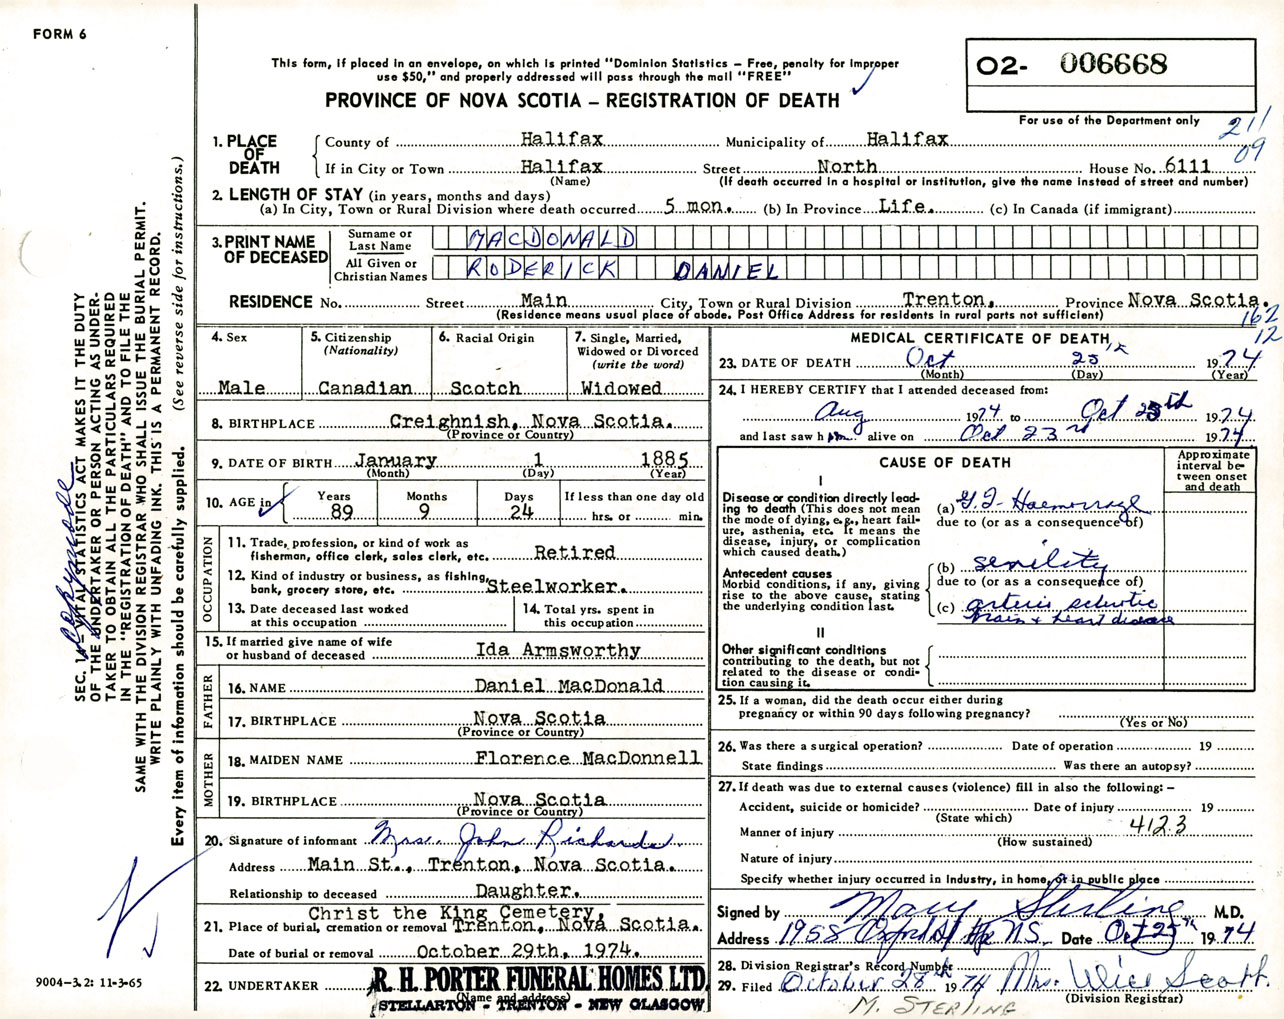 FORM 6
This form, if placed in an envelope, on which is printed "Dominion Statistics – Free, penalty for improper
use $50," and properly addressed will pass through the mail "FREE"
PROVINCE OF NOVA SCOTIA – REGISTRATION OF DEATH
02- 006668
For use of the Department only
211
09
1. PLACE OF DEATH
County of Halifax Municipality of Halifax
If in City or Town Halifax Street North House No. 6111
(Name) (If death occurred in a hospital or institution, give the name instead of street and number)
2. LENGTH OF STAY (in years, months and days)
(a) In City, Town or Rural Division where death occurred 5 mon. (b) In Province Life. (c) In Canada (if immigrant)
3. PRINT NAME OF DECEASED
Surname or Last Name MACDONALD
All Given or Christian Names RODERICK DANIEL
RESIDENCE No. Street Main City, Town or Rural Division Trenton, Province Nova Scotia.
(Residence means usual place of abode. Post Office Address for residents in rural parts not sufficient)
162
12
4. Sex
Male
5. Citizenship
(Nationality)
Canadian
6. Racial Origin
Scotch
7. Single, Married,
Widowed or Divorced
(write the word)
Widowed
8. BIRTHPLACE Creighnish, Nova Scotia.
(Province or Country)
9. DATE OF BIRTH January 1 1885
(Month) (Day) (Year)
10. AGE in
Years 89
Months 9
Days 24
If less than one day old
hrs. or min.
OCCUPATION
11. Trade, profession, or kind of work as
fisherman, office clerk, sales clerk, etc. Retired
12. Kind of industry or business, as fishing,
bank, grocery store, etc. Steelworker.
13. Date deceased last worked
at this occupation
14. Total yrs. spent in
this occupation
15. If married give name of wife
or husband of deceased Ida Armsworthy
FATHER
16. NAME Daniel MacDonald
17. BIRTHPLACE Nova Scotia
(Province or Country)
MOTHER
18. MAIDEN NAME Florence MacDonnell
19. BIRTHPLACE Nova Scotia
(Province or Country)
20. Signature of informant Mrs. John Richards.
Address Main St., Trenton, Nova Scotia.
Relationship to deceased Daughter.
Christ the King Cemetery,
21. Place of burial, cremation or removal Trenton, Nova Scotia.
Date of burial or removal October 29th, 1974.
22. UNDERTAKER R. H. PORTER FUNERAL HOMES LTD.
(Name and address)
STELLARTON - TRENTON - NEW GLASGOW
MEDICAL CERTIFICATE OF DEATH
23. DATE OF DEATH Oct 25th 1974
(Month) (Day) (Year)
24. I HEREBY CERTIFY that I attended deceased from:
Aug 1974 to Oct 25th 1974
and last saw him alive on Oct 23rd 1974
CAUSE OF DEATH
Approximate interval between onset and death
I
Disease or condition directly leading to death (This does not mean the mode of dying, e.g., heart failure, asthenia, etc. It means the disease, injury, or complication which caused death.)
(a) G.I. Haemorrage
due to (or as a consequence of)
Antecedent causes
Morbid conditions, if any, giving rise to the above cause, stating the underlying condition last.
(b) senility
due to (or as a consequence of)
(c) arterio sclerotic
brain + heart disease
II
Other significant conditions contributing to the death, but not related to the disease or condition causing it.
25. If a woman, did the death occur either during
pregnancy or within 90 days following pregnancy?
(Yes or No)
26. Was there a surgical operation? Date of operation 19
State findings Was there an autopsy?
27. If death was due to external causes (violence) fill in also the following: –
Accident, suicide or homicide? Date of injury 19
(State which)
412.3
Manner of injury
(How sustained)
Nature of injury
Specify whether injury occurred in industry, in home, or in public place
Signed by Mary Sterling M.D.
Address 1958 Oxford St Hfx N.S. Date Oct 25th 1974
28. Division Registrar's Record Number
29. Filed October 28th 1974 Mrs. Scott.
(Division Registrar)
M. STERLING
SEC. VITAL STATISTICS ACT MAKES IT THE DUTY
OF THE UNDERTAKER OR PERSON ACTING AS UNDER-
TAKER TO OBTAIN ALL THE PARTICULARS REQUIRED
IN THE "REGISTRATION OF DEATH" AND TO FILE THE
SAME WITH THE DIVISION REGISTRAR WHO SHALL ISSUE THE BURIAL PERMIT.
WRITE PLAINLY WITH UNFADING INK. THIS IS A PERMANENT RECORD.
Every item of information should be carefully supplied. (See reverse side for instructions.)
9004-3.2: 11-3-65